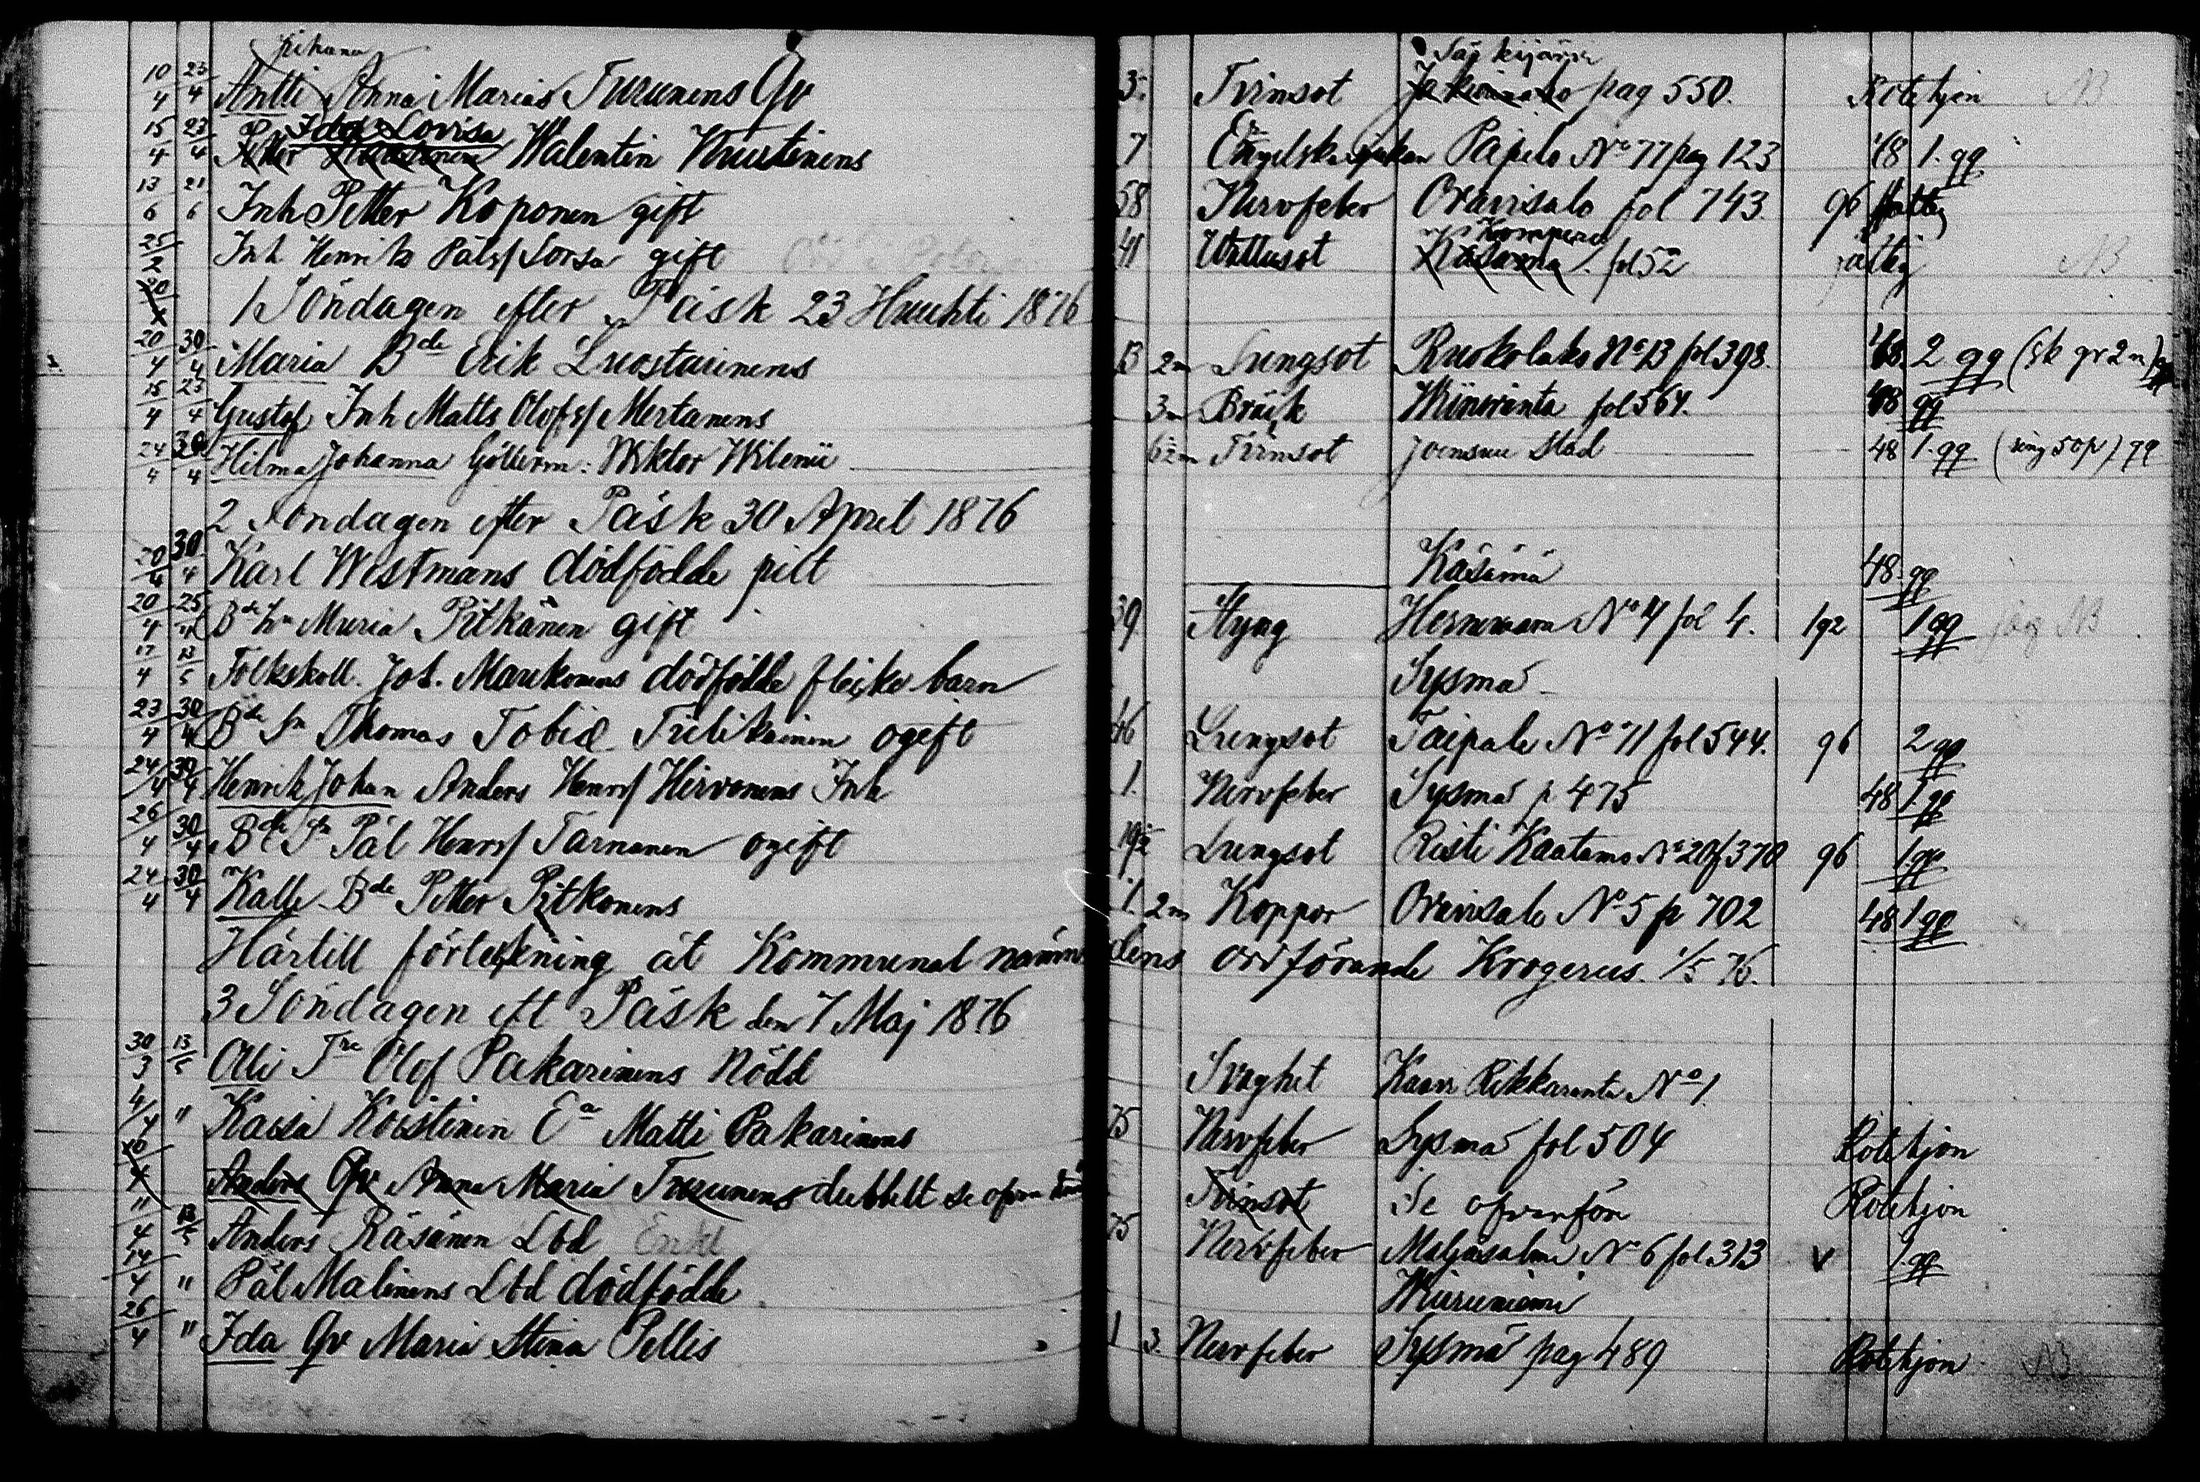 Johana Särkijärvi
10/4 23/4 Antti Anna Marias Turunens Qv 3. Tvinsot pag 550. Rotehjon NB
Ida Lovisa
15/4 23/4 Petter Walentin Mustinens 7 Engelska sjukan Papelo No 77 pag 123 48 1. qq
13/6 21/6 Inh Petter Koponen gift 58 Nervfeber Oravisalo fol 743 96 fattig
Kompero
25/2 Inh Henrik Pålss Sorsa gift 41 Wattusot Käsämä. fol 52 fattig NB
1 Söndagen efter Påsk 23 Huuhti 1876
20/4 30/4 Maria Bde Erik Luostarinens 13 2m Lungsot Ruokolaks No 13 fol 398. 48 2 qq (sk qr 2 m)
15/4 23/4 Gustaf Inh Matts Olofss Mertanens 3m Bråck Wiinranta fol 564. 48 qq
24/4 30/4 Hilma Johanna Göllerm: Wiktor Wilenii 6½m Tvinsot Joensuu Stad 48 1. qq (ring 50 p)
2 Söndagen efter Påsk 30 April 1876
20/4 30/4 Karl Westmans dödfödde pilt Käsämä 48 qq
20/4 25/4 Bde hu Maria Pitkänen gift 39 Styng Hernevaara No 4 fol 4. 192 1 qq NB
17/4 13/5 Folkskoll. Joh. Maukonens dödfödde flicke barn Sysmä
23/4 30/4 Bde Sn Thomas Tobiæ Tulikainen ogift 46 Lungsot Taipale No 11 fol 544. 96 2 qq
24/4 30/4 Henrik Johan Anders Henrss Hirvonens Inh 1. Nervfeber Sysmä p 475 48 1. qq
26/4 30/4 Bde Sn Pål Henrss Tarnanen ogift 19½ Lungsot Risti Kaatamo No 20 f 370 96 1 qq
24/4 30/4 Kalle Bde Petter Pitkonens 1. 2m Koppor Oravisalo No 5 p 702 48 1 qq
Härtill förteckning åt Kommunal nämndens ordförande Krogerus. 1/5 76.
3 Söndagen eft Påsk den 7 Maj 1876
30/3 13/5 Olli Tre Olof Pakarinens Nödd Svaghet Kaavi Rikkaranta No 1.
4/4 " Kaisa Koistinen Ea Matti Pakarinens 75 Nervfeber Sysmä fol 504 Rotehjon
20/4 Anders Qv Anna Maria Turunens dubbelt se ofvan Tvinsot Se ofvanför Rotehjon
11/4 13/5 Anders Räsänen Lbd Enkl 75 Nervfeber Maljasalmi No 6 fol 313 v 1. qq
14/4 " Pål Malinens Lbd dödfödde Wiuruniemi
26/4 " Ida Qv Maria Stina Pellis 1 3 Nervfeber Sysmä pag 489 Rotehjon NB